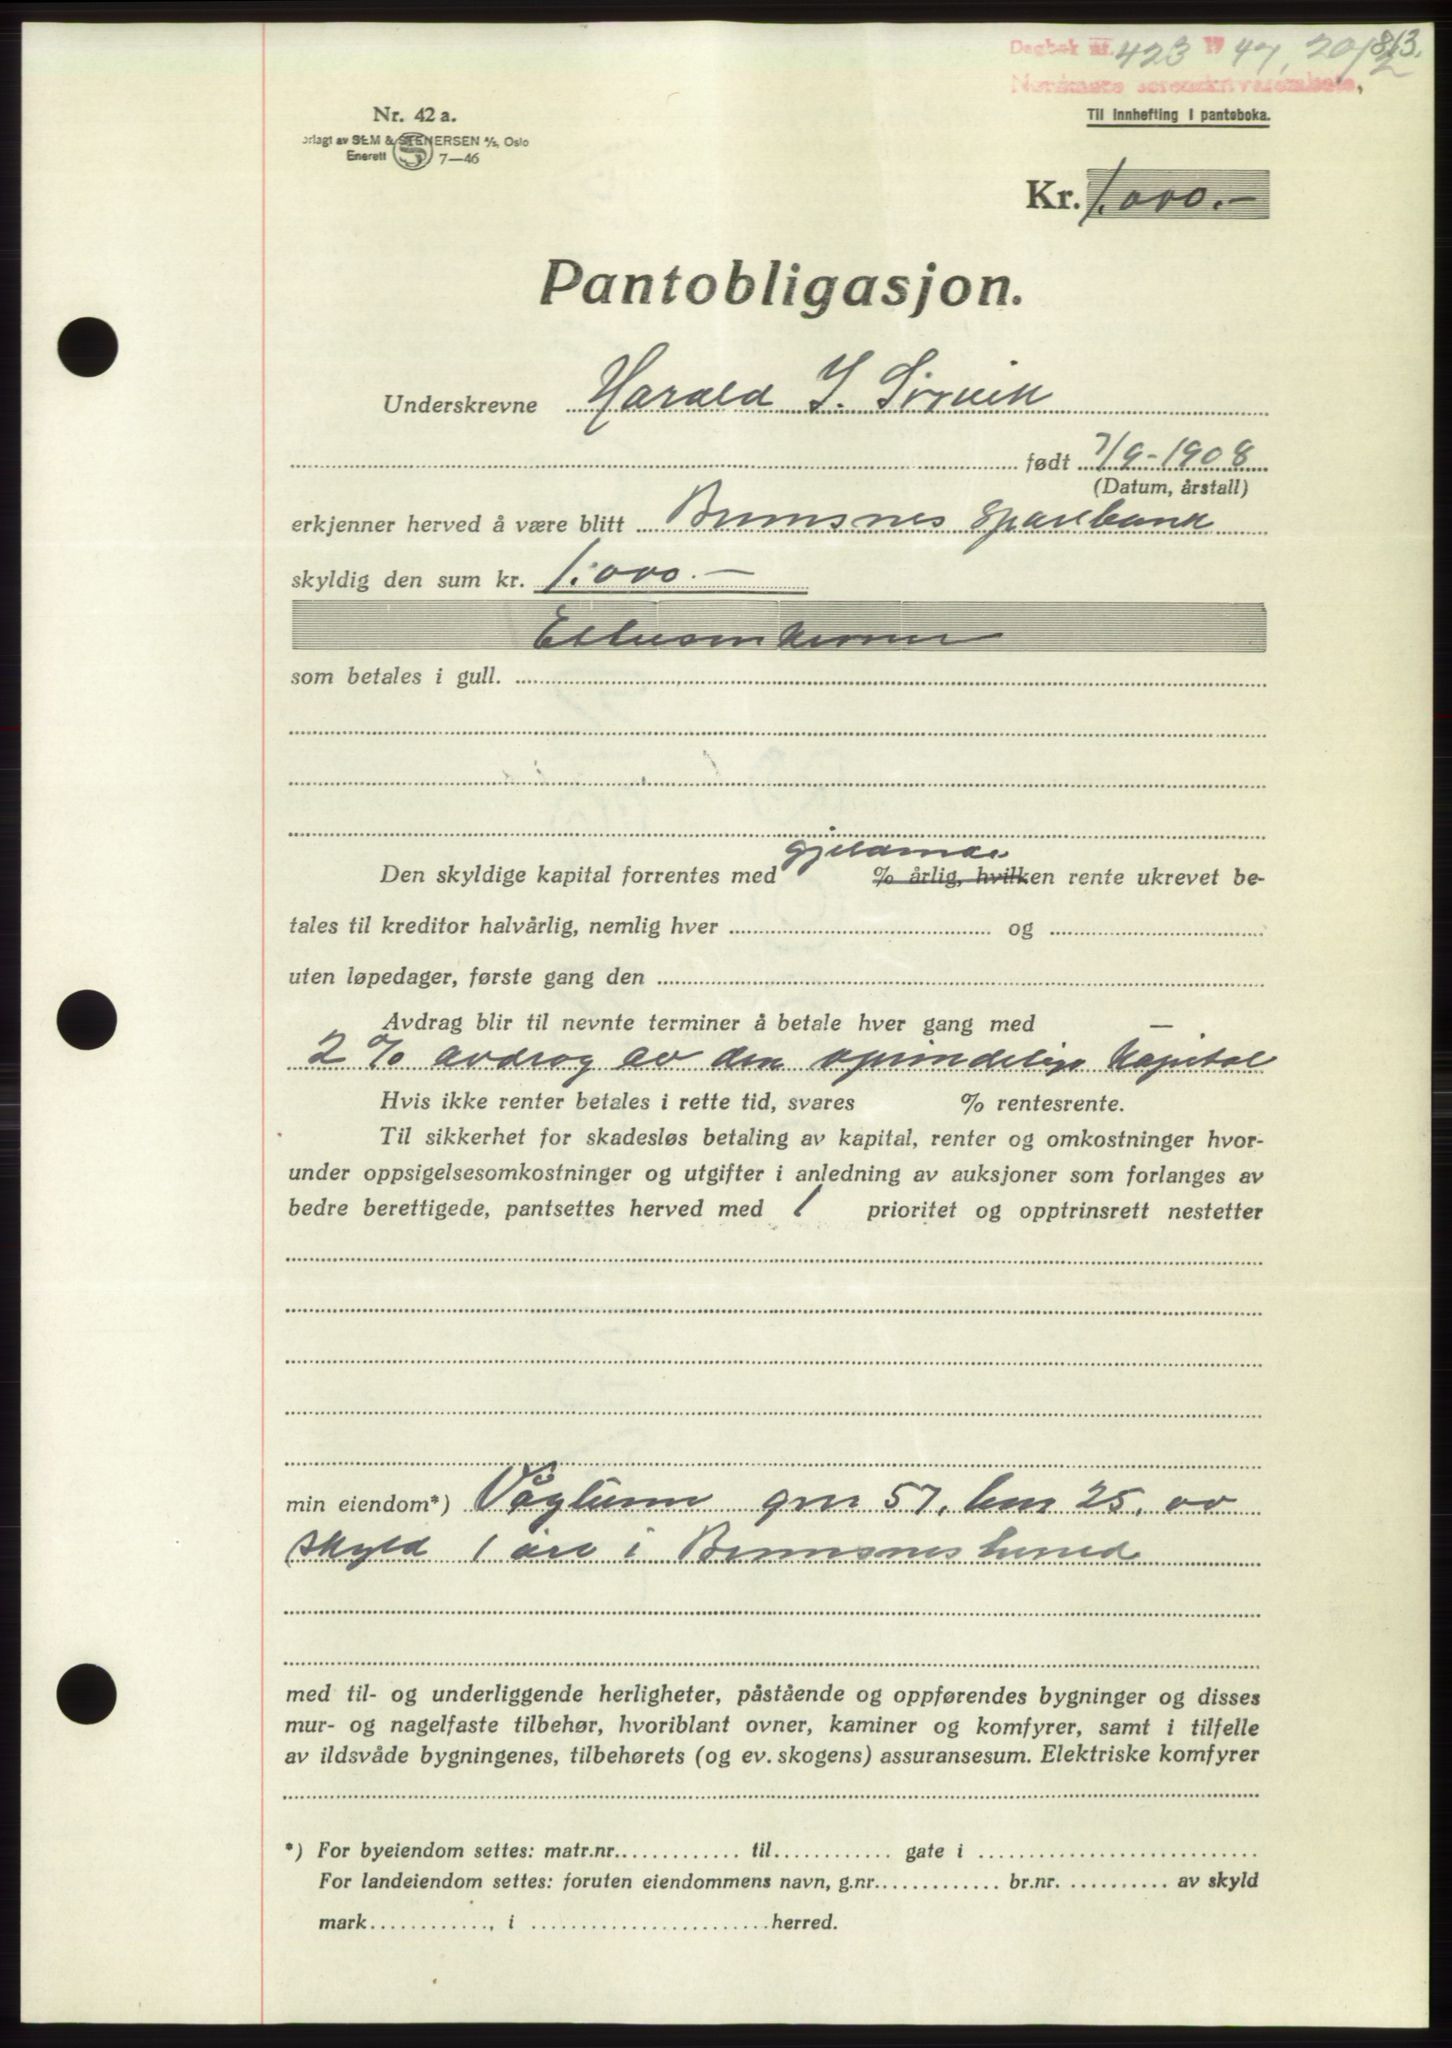 Dagbok nr. 423 1947, 20/2 813.
Nordmøre sorenskriverembete.
Nr. 42 a.
orlagt av SEM & STENERSEN A/S, Oslo
Enerett S 7—46
Til innhefting i panteboka.
Kr. 1.000.-
Pantobligasjon.
Underskrevne Harald I. Sørvik
født 7/9-1908
(Datum, årstall)
erkjenner herved å være blitt Bremsnes Sparebank
skyldig den sum kr. 1.000.—
Ettusenkroner
som betales i gull.
gjeldende
Den skyldige kapital forrentes med % årlig, hvilken rente ukrevet be-
tales til kreditor halvårlig, nemlig hver og
uten løpedager, første gang den
Avdrag blir til nevnte terminer å betale hver gang med —
2 % avdrag av den oprindelige kapital
Hvis ikke renter betales i rette tid, svares % rentesrente.
Til sikkerhet for skadesløs betaling av kapital, renter og omkostninger hvor-
under oppsigelsesomkostninger og utgifter i anledning av auksjoner som forlanges av
bedre berettigede, pantsettes herved med 1 prioritet og opptrinsrett nestetter
min eiendom*) Vågtunn gnr 57, bnr 25, av
skyld 1 øre i Bremsnes herred
med til- og underliggende herligheter, påstående og oppførendes bygninger og disses
mur- og nagelfaste tilbehør, hvoriblant ovner, kaminer og komfyrer, samt i tilfelle
av ildsvåde bygningenes, tilbehørets (og ev. skogens) assuransesum. Elektriske komfyrer
*) For byeiendom settes: matr.nr. til gate i
For landeiendom settes: foruten eiendommens navn, g.nr. br.nr. av skyld
mark , i herred.